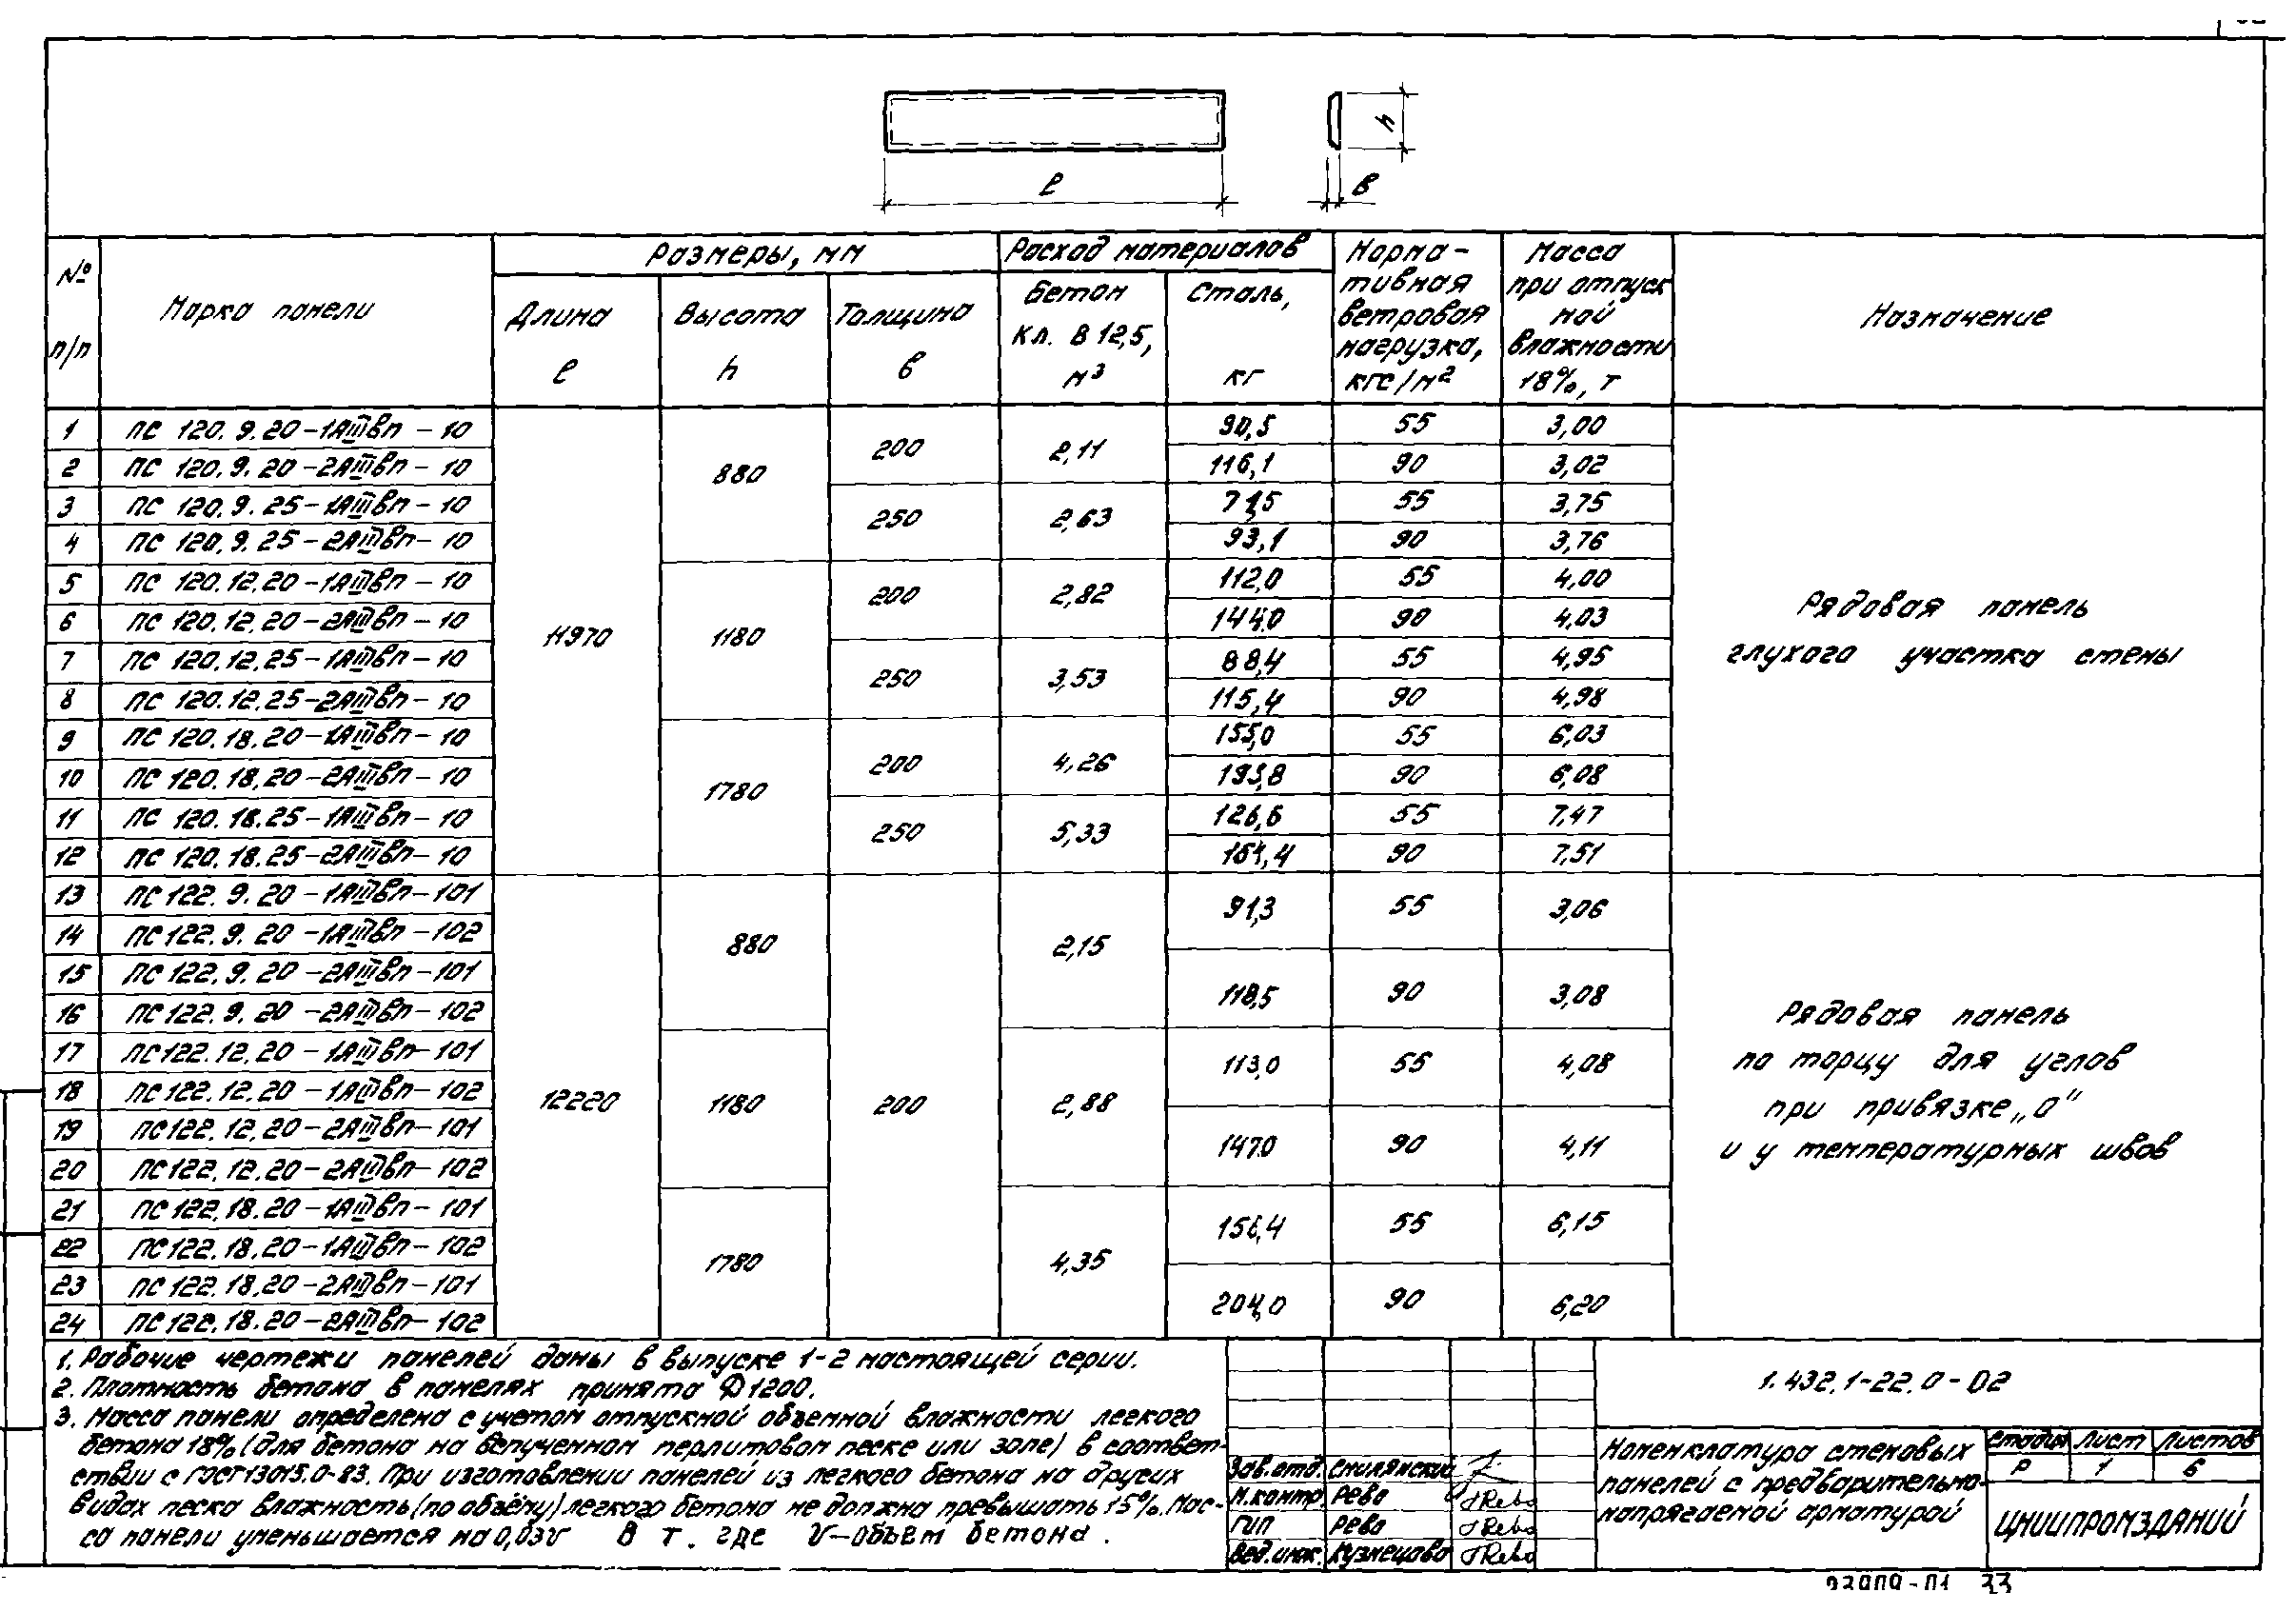 ℓ
в
h
№ п/п
Марка панели
Размеры, мм
Длина ℓ
Высота h
Толщина в
Расход материалов
Бетон Кл. В 12,5, м³
Сталь, кг
Норма-
тивная
ветровая
нагрузка,
кгс/м²
Масса
при отпуск
ной
влажности
18%, т
Назначение
1 ПС 120.9.20-1АIIIвп-10 11970 880 200 2,11 90,5 55 3,00
2 ПС 120.9.20-2АIIIвп-10 116,1 90 3,02
3 ПС 120.9.25-1АIIIвп-10 250 2,63 55 3,75
4 ПС 120.9.25-2АIIIвп-10 93,1 90 3,76
5 ПС 120.12.20-1АIIIвп-10 1180 200 2,82 112,0 55 4,00
6 ПС 120.12.20-2АIIIвп-10 144,0 90 4,03
7 ПС 120.12.25-1АIIIвп-10 250 3,53 88,4 55 4,95
8 ПС 120.12.25-2АIIIвп-10 115,4 90 4,98
9 ПС 120.18.20-1АIIIвп-10 1780 200 4,26 155,0 55 6,03
10 ПС 120.18.20-2АIIIвп-10 90 6,08
11 ПС 120.18.25-1АIIIвп-10 250 5,33 126,6 55 7,47
12 ПС 120.18.25-2АIIIвп-10 90 7,51
Рядовая панель
глухого участка стены
13 ПС 122.9.20-1АIIIвп-101 12220 880 200 2,15 91,3 55 3,06
14 ПС 122.9.20-1АIIIвп-102
15 ПС 122.9.20-2АIIIвп-101 118,5 90 3,08
16 ПС 122.9.20-2АIIIвп-102
17 ПС 122.12.20-1АIIIвп-101 1180 2,88 113,0 55 4,08
18 ПС 122.12.20-1АIIIвп-102
19 ПС 122.12.20-2АIIIвп-101 147,0 90 4,11
20 ПС 122.12.20-2АIIIвп-102
21 ПС 122.18.20-1АIIIвп-101 1780 4,35 156,4 55 6,15
22 ПС 122.18.20-1АIIIвп-102
23 ПС 122.18.20-2АIIIвп-101 204,0 90 6,20
24 ПС 122.18.20-2АIIIвп-102
Рядовая панель
по торцу для углов
при привязке „а"
и у температурных швов
1. Рабочие чертежи панелей даны в выпуске 1-2 настоящей серии.
2. Плотность бетона в панелях принята D1200.
3. Масса панели определена с учетом отпускной объемной влажности легкого
бетона 18% (для бетона на вспученном перлитовом песке или золе) в соответ-
ствии с ГОСТ 13015.0-83. При изготовлении панелей из легкого бетона на других
видах песка влажность (по объёму) легкого бетона не должна превышать 15%. Мас-
са панели уменьшается на 0,03V в т. где V-объем бетона.
Зав.отд. Смилянский
Н.контр. Рево
ГИП Рево
Вед.инж. Кузнецова
1.432.1-22.0-02
Номенклатура стеновых
панелей с предварительно-
напрягаемой арматурой
Стадия Лист Листов
Р 1 6
ЦНИИПРОМЗДАНИЙ
33